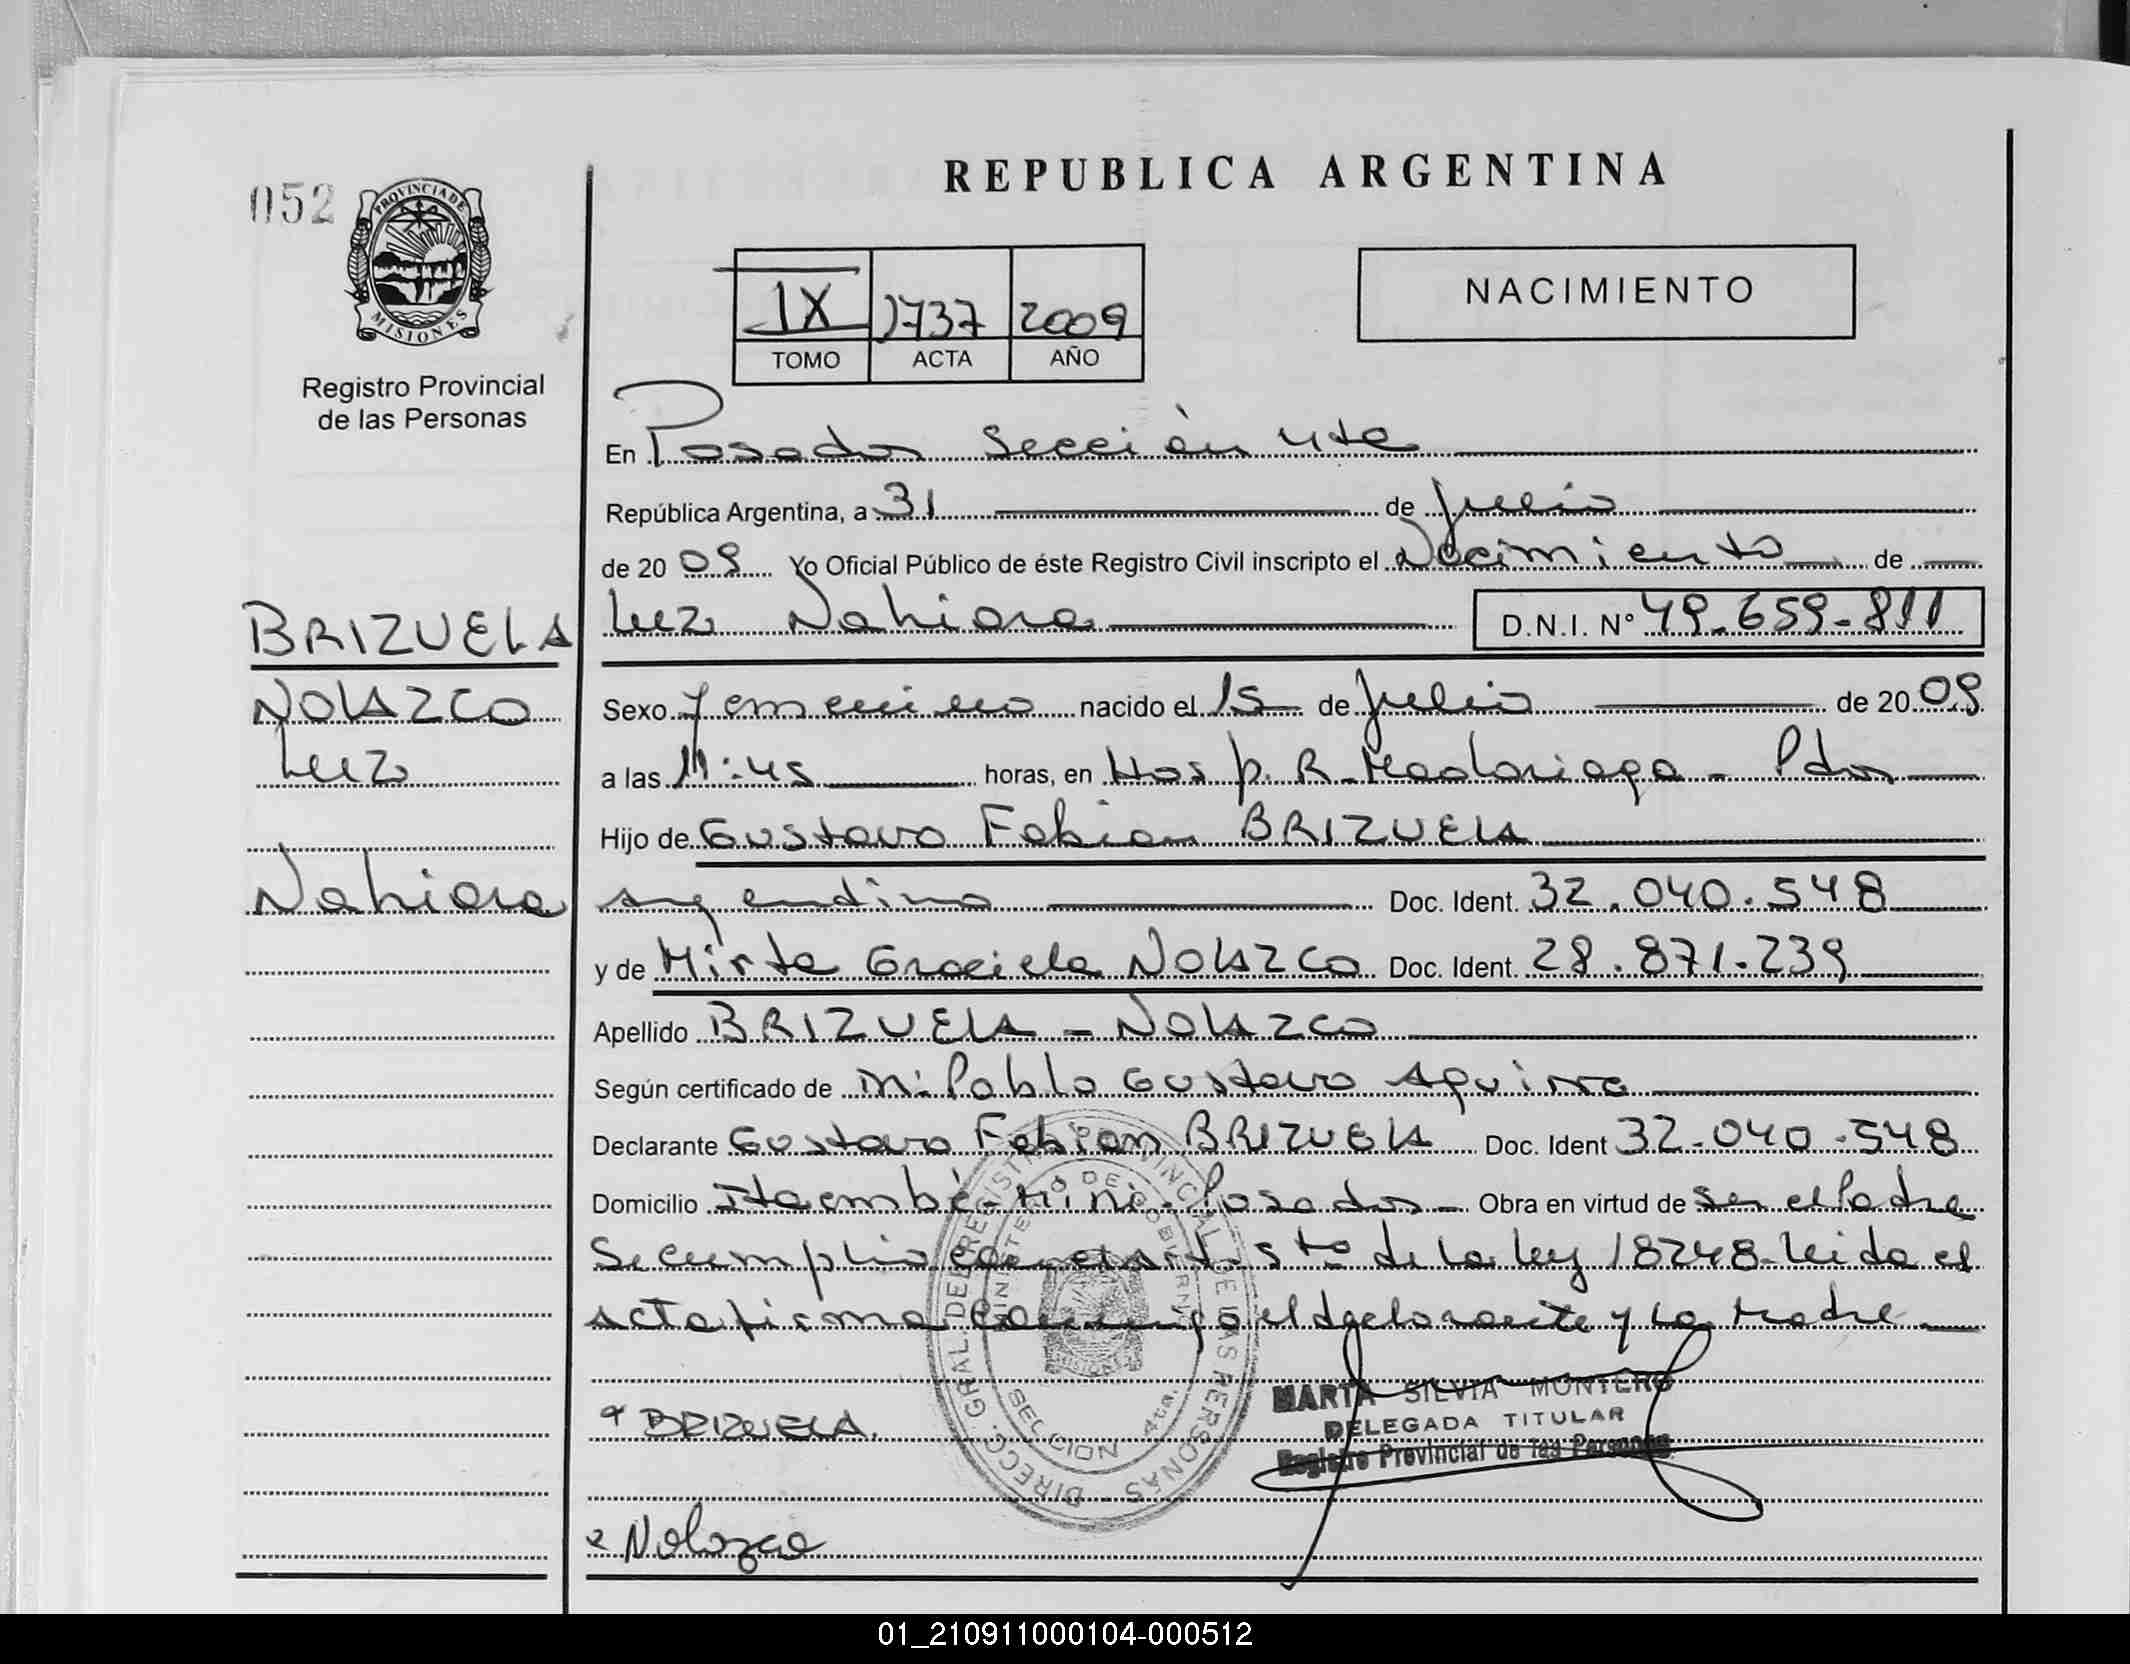 052
PROVINCIA DE
MISIONES
Registro Provincial
de las Personas
REPUBLICA ARGENTINA
IX 1737 2009
TOMO ACTA AÑO
NACIMIENTO
En Posadas Sección 4ta
República Argentina, a 31 de Julio
de 20 09 Yo Oficial Público de éste Registro Civil inscripto el Nacimiento de
BRIZUELA
NOLAZCO
Luz
Nahiara
Luz Nahiara D.N.I. N° 49.659.811
Sexo femenino nacido el 15 de Julio de 20 09
a las 11:45 horas, en Hosp. R. Madariaga - Pdas
Hijo de Gustavo Fabian BRIZUELA
argentino Doc. Ident. 32.040.548
y de Mirta Graciela NOLAZCO Doc. Ident. 28.871.239
Apellido BRIZUELA - NOLAZCO
Según certificado de M: Pablo Gustavo Aquino
Declarante Gustavo Fabian BRIZUELA Doc. Ident 32.040.548
Domicilio Itaembé Mini. Posadas - Obra en virtud de ser el Padre
Se cumplio con el art. 5to de la ley 18248. Leida el
acta firma conmigo el declarante y la Madre
BRIZUELA.
MARTA SILVIA MONTERO
DELEGADA TITULAR
Registro Provincial de las Personas
Nolazco
DIRECC. GRAL. DEL REGISTRO PROVINCIAL DE LAS PERSONAS
MINISTERIO DE GOBIERNO
SECCION 4ta.
01_210911000104-000512